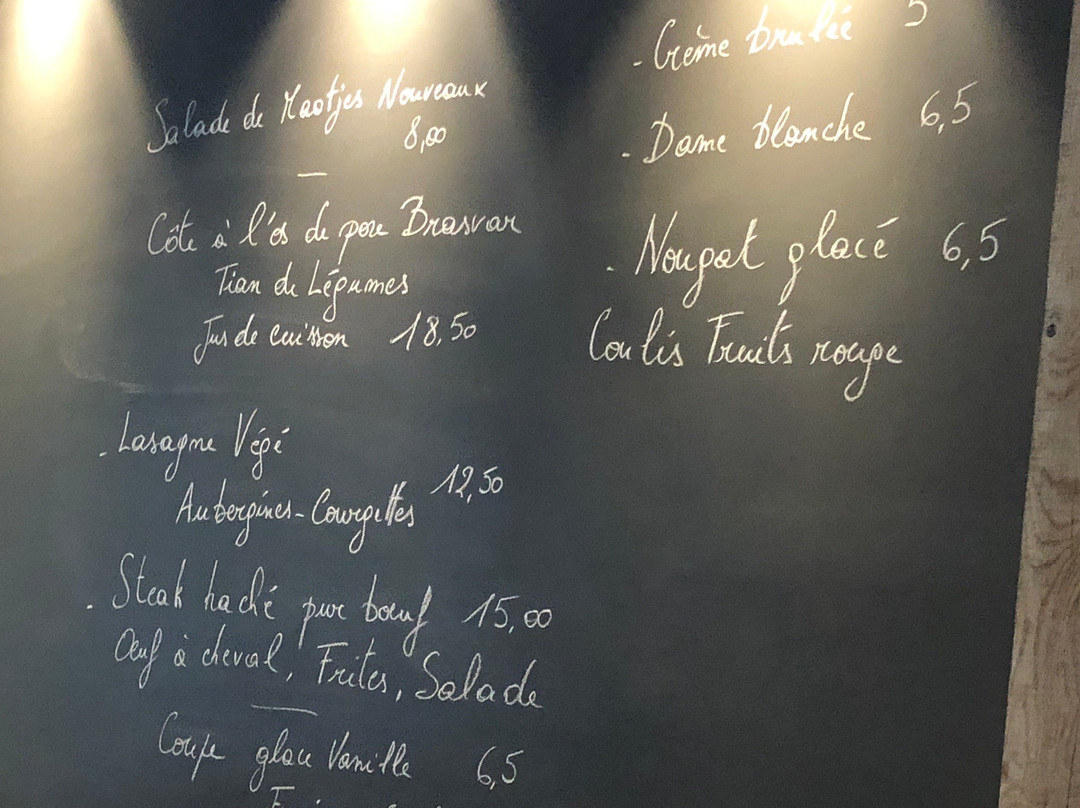 Salade de Maatjes Nouveaux
8,00
Côte à l'os de porc Brasvar
Tian de Légumes
Jus de cuisson 18,50
. Lasagne Végé
12,50
Aubergines - Courgettes
. Steak haché pur boeuf 15,00
Œuf à cheval, Frites, Salade
Coupe glace Vanille 6,5
- Crème brulée 5
- Dame blanche 6,5
. Nougat glacé 6,5
Coulis Fruits rouge